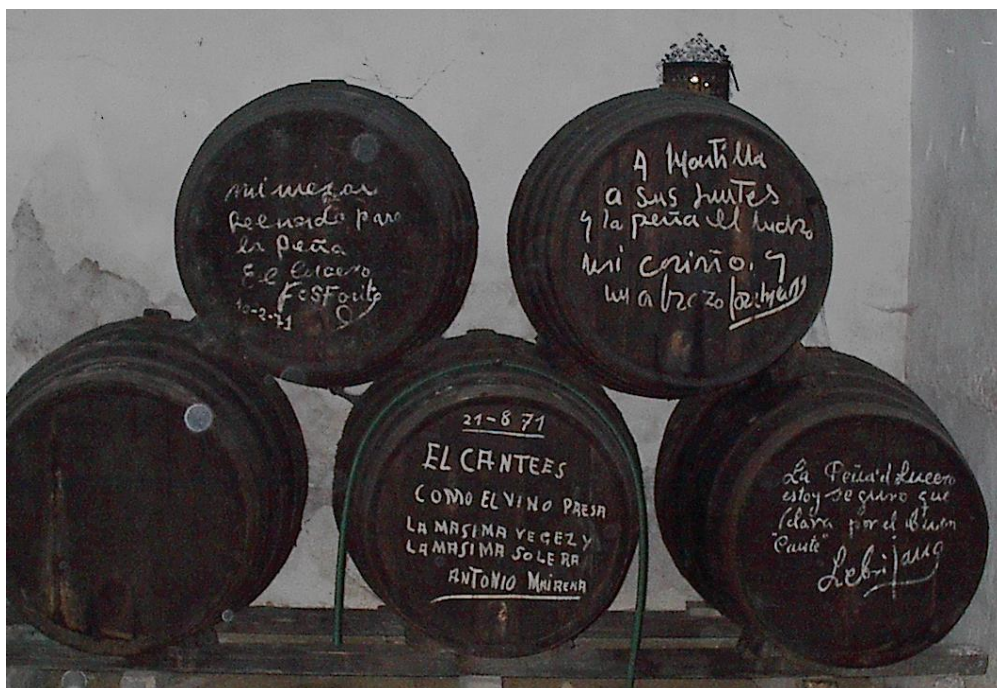 mi mejor
recuerdo para
la Peña
El Lucero
Fosforito
10-2-71
A Montilla
a sus juntes
y la peña el lucero
mi cariño. y
un abrazo
21-8 71
EL CANTE ES
COMO EL VINO PRESA
LA MASIMA VEGEZ Y
LA MASIMA SOLERA
ANTONIO MAIRENA
La Peña'l Lucero
estoy seguro que
por el buen
"Cante"
Lebrijano